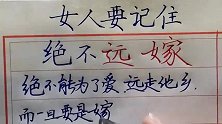 女人要记住
绝不远嫁
绝不能为了爱.远走他乡.
而一旦要是嫁